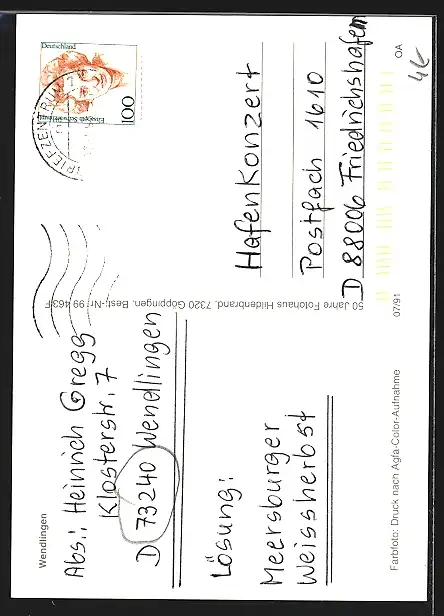 Wendlingen
Abs.: Heinrich Gregg
Klosterstr. 7
D 73240 Wendlingen
Lösung:
Meersburger
Weissherbst
Farbfoto: Druck nach Agfa-Color-Aufnahme
07/91
50 Jahre Fotohaus Hildenbrand, 7320 Göppingen, Best.-Nr. 99 463 F
Deutschland
100
BRIEFZENTRUM
Hafenkonzert
Postfach 1610
D 88006 Friedrichshafen
OA